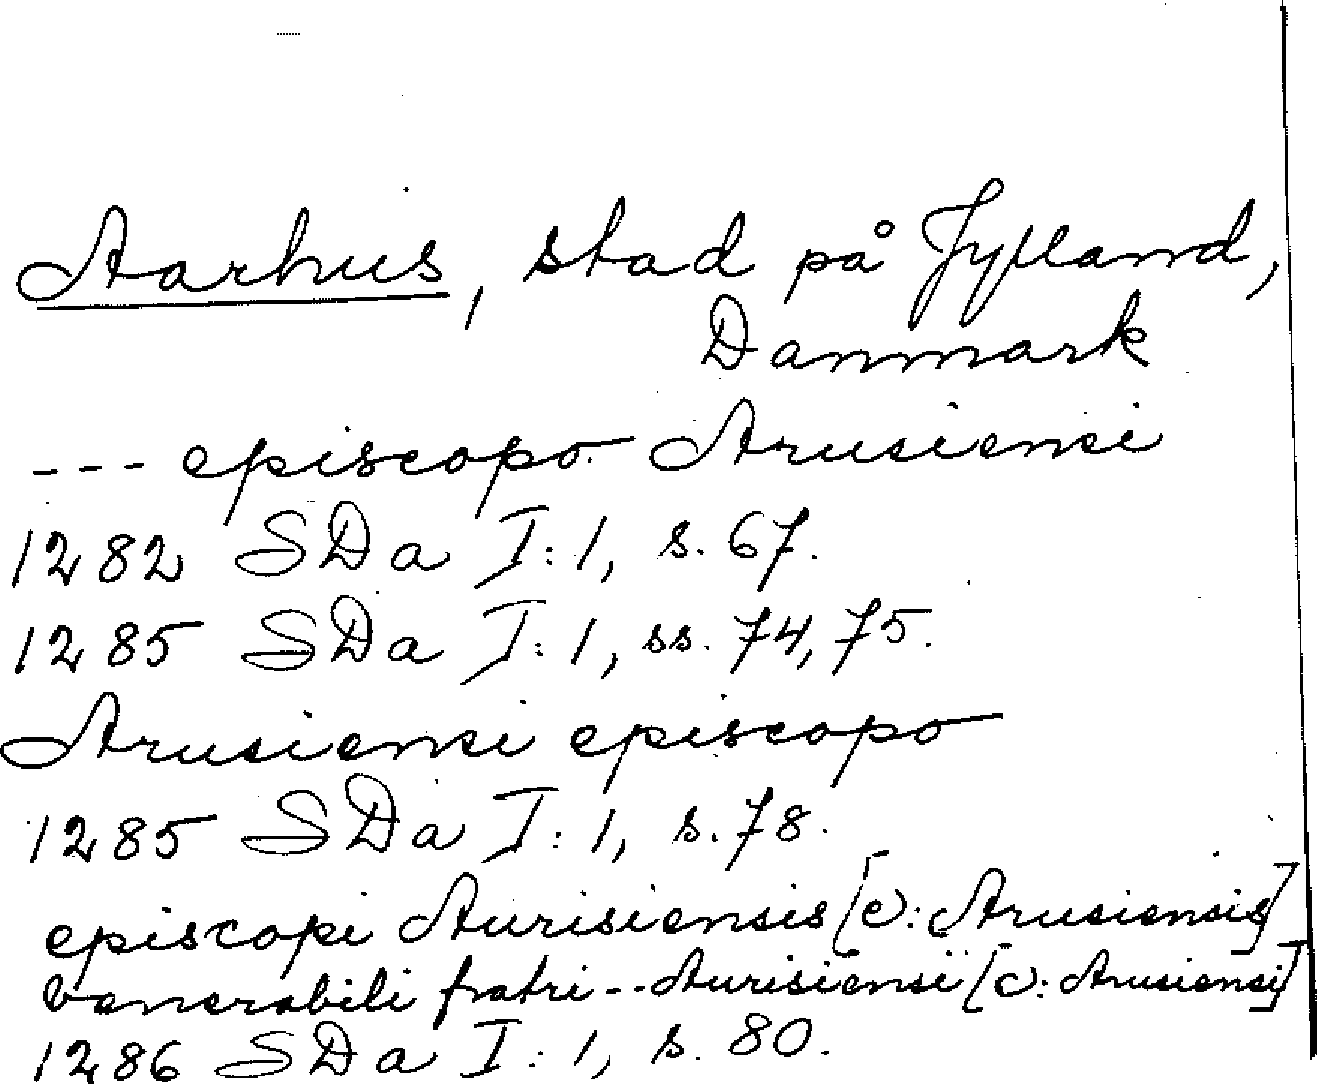 Aarhus, stad på Jylland,
Danmark
--- episcopo Arusiensi
1282 SDa I:1, s. 67.
1285 SDa I:1, ss. 74, 75.
Arusiensi episcopo
1285 SDa I:1, s. 78.
episcopi Aurisiensis [ɔ: Arusiensis]
venerabili fratri -- Aurisiensi [ɔ: Arusiensi]
1286 SDa I:1, s. 80.